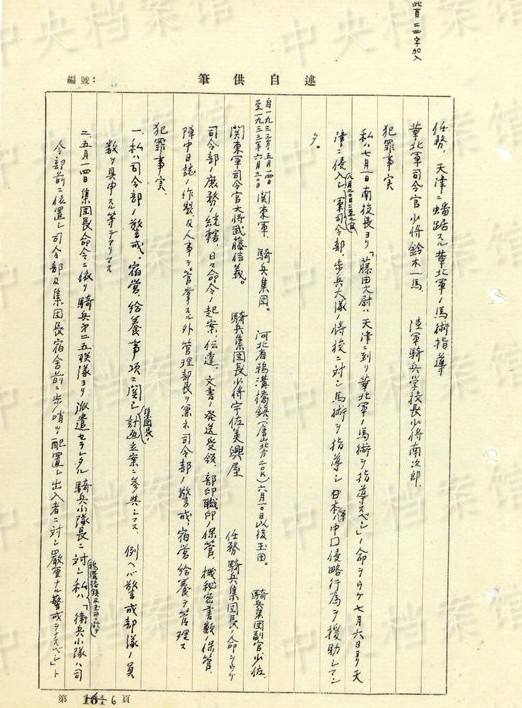 此頁二四字加入
述自供筆
編號：
任務、天津ニ蟠踞スル華北軍ノ馬術指導
華北軍司令官少将鈴木一馬　陸軍騎兵学校長少将南次郎、
犯罪事実
私ハ七月一日南校長ヨリ「藤田大尉ハ天津ニ到リ華北軍ノ馬術ヲ指導スベシ」ノ命ヲウケ七月六日ヨリ天
津ニ侵入シ軍司令部、歩兵大隊ノ将校ニ対シ馬術ヲ指導シ日本ノ中国侵略行為ヲ援助シマシ
タ。
自一九三三年五月一日
至一九三三年六月三日
関東軍、騎兵集団。　河北省鴉溝橋鎮（唐山北方二〇K）六月一日以後玉田。　騎兵集団副官少佐
関東軍司令官大将武藤信義。　騎兵集団長少将宇佐美興屋　任務騎兵集団長ノ命ヲウケ
司令部ノ庶務ノ統轄、日々命令ノ起案伝達、文書ノ発送受領、部印職印ノ保管、機秘密書類ノ保管、
陣中日誌ノ作製及人事ヲ管掌スル外管理部長ヲ兼ネ司令部ノ警戒、宿営給養ヲ管理ス
犯罪事実、
一、私ハ司令部ノ警戒、宿営給養事項ニ関シ集団長ノ計画立案ニ参与シマス、例ヘバ警戒部隊ノ員
数ヲ具申スル等デアリマス
二、五月一四日集団長命令ニ依リ騎兵第二五聯隊ヨリ派遣セラレタル騎兵小隊長ニ対シ私ハ「衛兵小隊ハ司
令部前ニ位置シ司令部及集団長宿舎前ニ歩哨ヲ配置シ出入者ニ対シ厳重ナル警戒ヲナスベシ」ト
第 6 頁